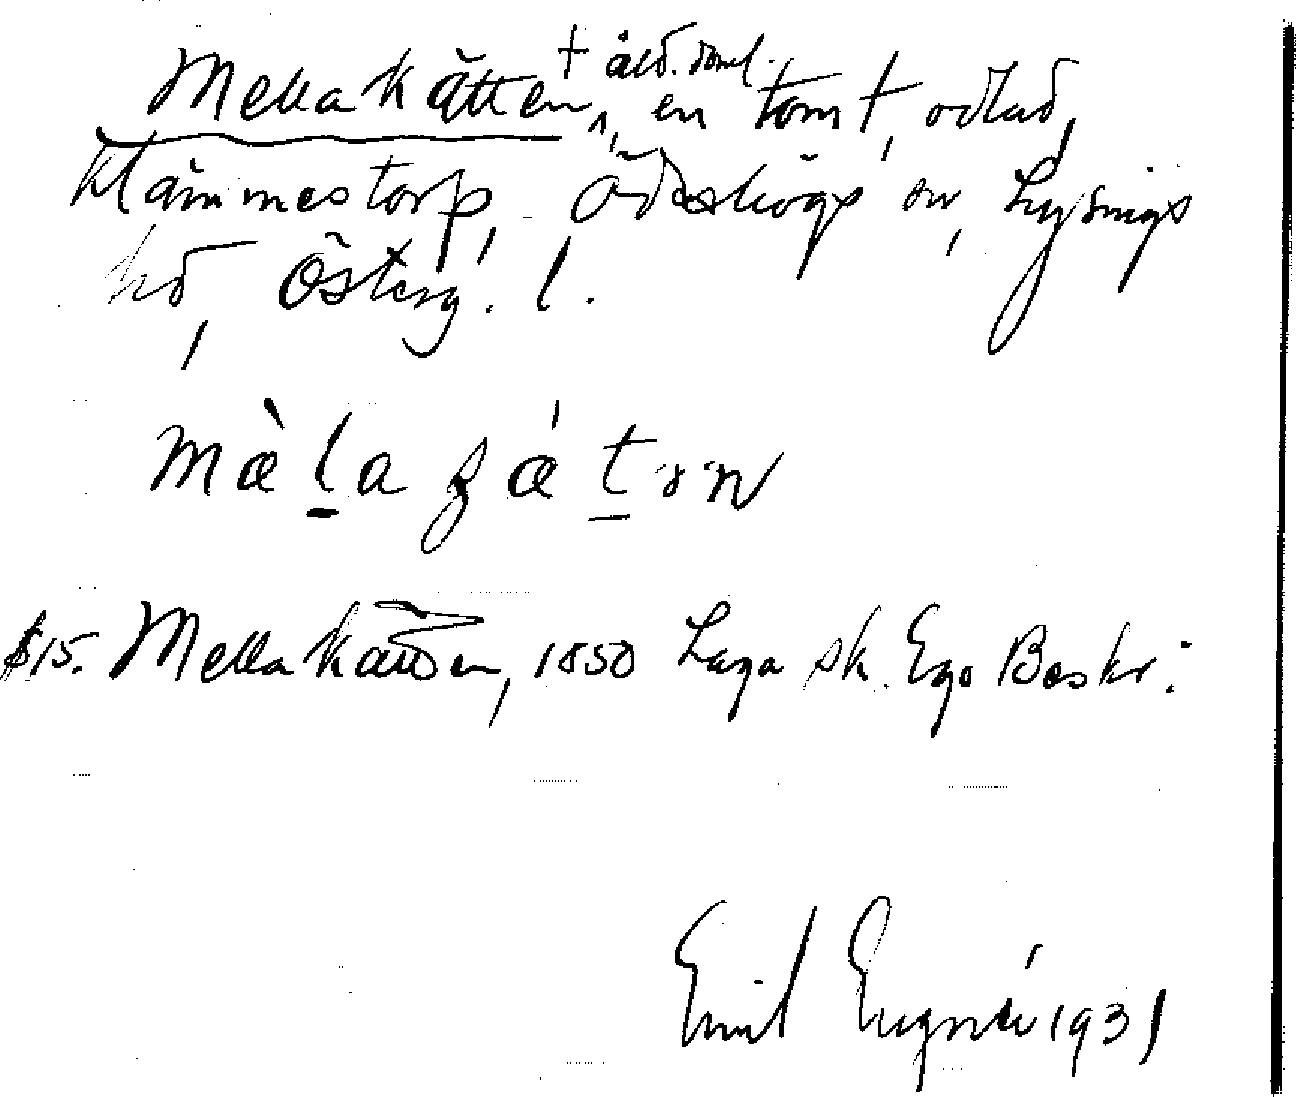 Mellakätten † åld. saml., en tomt, odlad,
Klämmestorp, Ödeshögs sn, Lysings
hd, Österg. l.
mæ̀la ʓǽtən
§15. Mellakällen, 1850 Laga sk. Ego Beskr:
Emil 1931